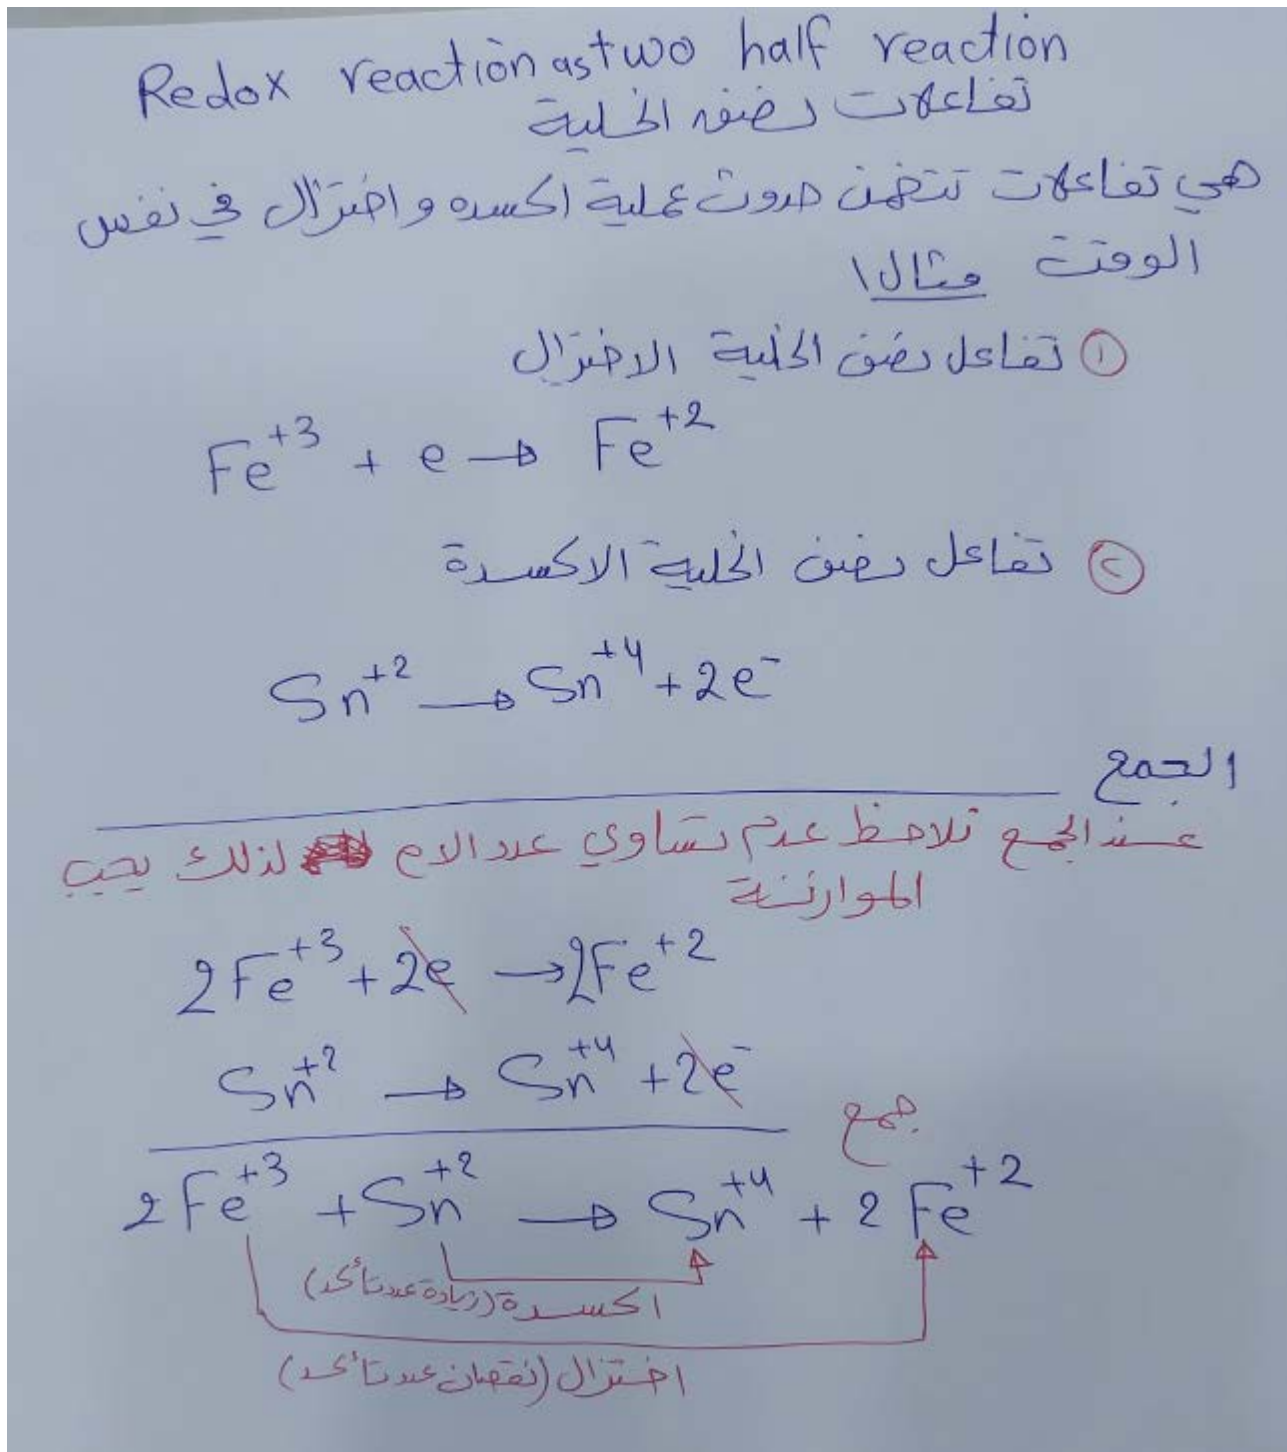 Redox reaction as two half reaction
تفاعلات نصف الخلية
هي تفاعلات تتضمن حدوث عملية اكسده و اختزال في نفس
الوقت مثال ١
① تفاعل نصف الخلية الاختزال
Fe⁺³ + e → Fe⁺²
② تفاعل نصف الخلية الاكسدة
Sn⁺² → Sn⁺⁴ + 2e⁻
الجمع
عند الجمع نلاحظ عدم تساوي عدد الام لذلك يجب
الموازنة
2Fe⁺³ + 2e → 2Fe⁺²
Sn⁺² → Sn⁺⁴ + 2e⁻
جمع
2Fe⁺³ + Sn⁺² → Sn⁺⁴ + 2Fe⁺²
اكسدة (زيادة عدد تأكد)
اختزال (نقصان عدد تأكد)